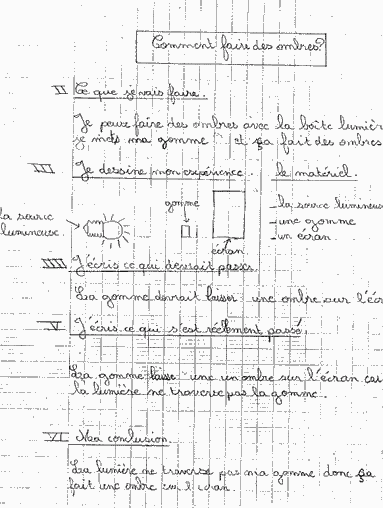 Comment faire des ombres?
II Ce que je vais faire.
Je peux faire des ombres avec la boîte lumière
je mets ma gomme et ça fait des ombres
III Je dessine mon expérience. le matériel.
gomme
la source
lumineuse.
écran
- la source lumineuse
- une gomme
- un écran.
IIII J'écris ce qui devrait passer.
La gomme devrait laisser une ombre sur l'écr
V J'écris ce qui s'est réelement passé.
La gomme laisse une un ombre sur l'écran car
la lumière ne traverse pas la gomme.
VI Ma conclusion.
La lumière ne traverse pas ma gomme donc ça
fait une ombre sur l'écran.